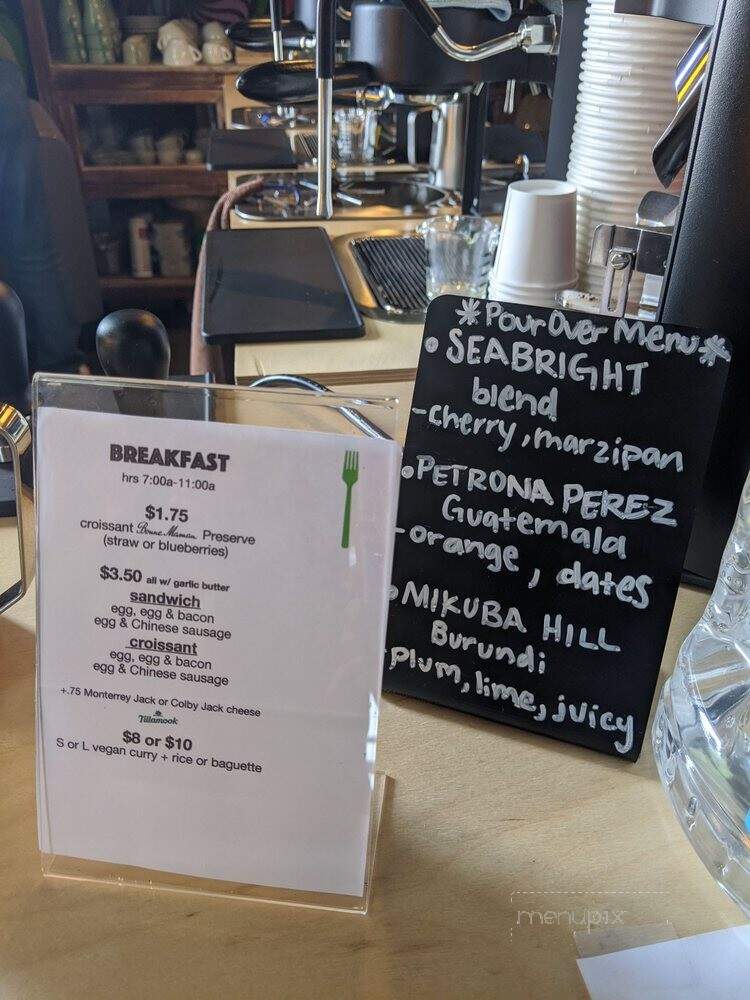 BREAKFAST
hrs 7:00a-11:00a
$1.75
croissant Bonne Maman Preserve
(straw or blueberries)
$3.50 all w/ garlic butter
sandwich
egg, egg & bacon
egg & Chinese sausage
croissant
egg, egg & bacon
egg & Chinese sausage
+.75 Monterrey Jack or Colby Jack cheese
Tillamook
$8 or $10
S or L vegan curry + rice or baguette
*Pour Over Menu*
• SEABRIGHT
blend
-cherry, marzipan
• PETRONA PEREZ
Guatemala
-orange, dates
• MIKUBA HILL
Burundi
-plum, lime, juicy
menupix